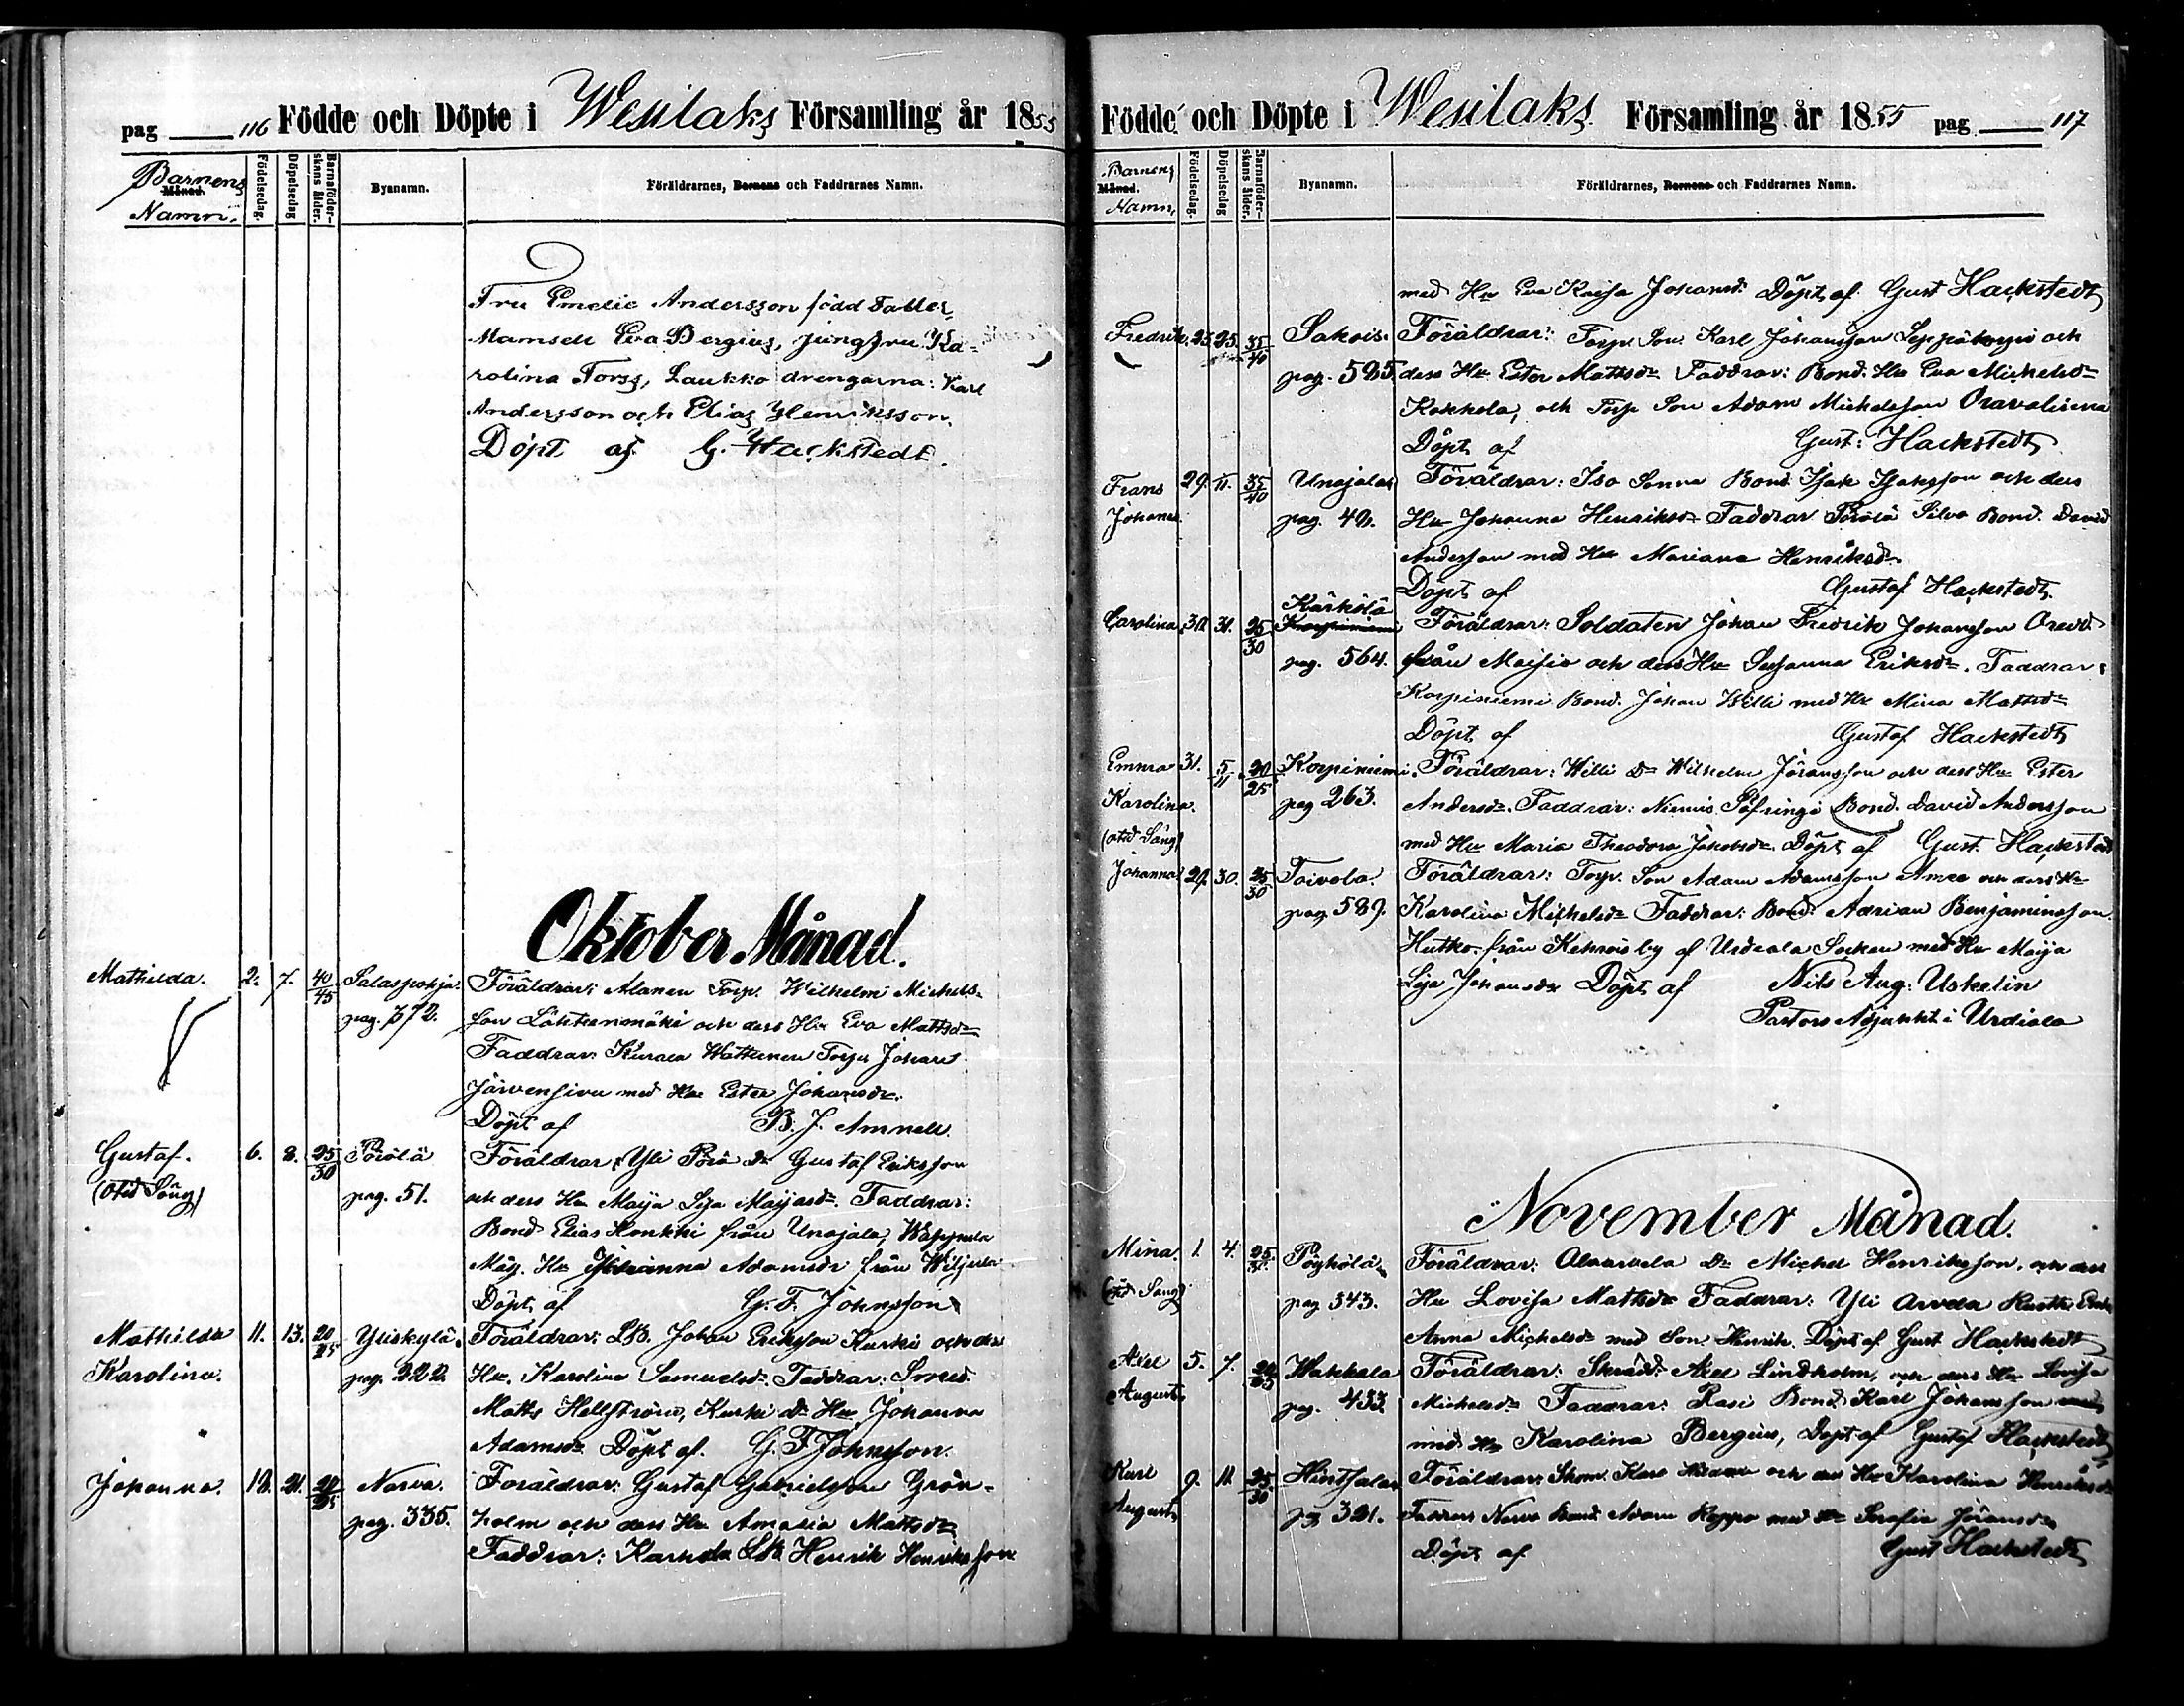 pag 116 Födde och Döpte i Wesilaks Församling år 1855
Barnens Månad. Namn.
Födelsedag.
Döpelsedag
Barnaföder-
skans ålder.
Byanamn.
Föräldrarnes, Barnens och Faddrarnes Namn.
Fru Emelie Andersson född Faller,
Mamsell Eva Bergius, jungfru Ka-
rolina Forss, Laukko drengarna: Karl
Andersson och Elias Henriksson.
Döpt af G. Hackstedt.
Oktober Månad.
Mathilda. 2. 7. 40/45 Salaspohja. Föräldrar: Alanen Torp. Wilhelm Michels-
pag. 572. son Lähteenmäki och dess Hu Eva Mattsdr
Faddrar: Kurala Torp Johan
Järvensivu med Hu Ester Johansdr.
Döpt af B. J. Amnell.
Gustaf. 6. 8. 25/30 Pörölä Föräldrar: Yli Pörö Dr Gustaf Eriksson
(Otid Säng) pag. 51. och dess Hu Maija Lisa Mayasdr. Faddrar:
Bond Elias Honkki från Unajala,
Måg. Hu Adamsdr från
Döpt af G. F. Johnsson
Mathilda 11. 13. 20/25 Yliskylä. Föräldrar: Johan Eriksson Kurki och dess
Karolina. pag. 222. Hu. Karolina Samuelsdr. Faddrar: Smed.
Matts Hellström, Kurki Dr Hu Johanna
Adamsdr Döpt af. G. F Johnsson.
Johanna. 18. 21. 20/25 Narva. Föräldrar: Gustaf Gabrielsson Grön-
pag. 335. holm och dess Hu. Amalia Mattsdr
Faddrar: Henrik Henriksson
Födde och Döpte i Wesilaks Församling år 1855 pag 117
Barnens Månad. Namn.
Födelsedag.
Döpelsedag
Barnaföder-
skans ålder.
Byanamn.
Föräldrarnes, Barnens och Faddrarnes Namn.
med Hu Eva Kaisa Johansdr Döpt af Gust Hackstedt
Fredrik. 25. 25. 35/40 Sakois. Föräldrar: Torp. Son Karl Johansson och
pag. 595. dess Hu Ester Mattsdr Faddrar: Bond. Hu Eva Michelsdr
Kokkola, och Torp Son Adam Michelsson Oravalisena
Döpt af Gust: Hackstedt
Frans 29. 11. 35/40 Unajala Föräldrar: Iso Sonna Bond Isak Isaksson och dess
Johannes. pag. 42. Hu Johanna Henriksdr Faddrar Pörölä Silvo Bond. David
Andersson med Hu Mariana Henriksdr.
Döpt af Gustaf Hackstedt.
Kärkölä
Carolina. 30. 31. 25/30 Korpiniemi Föräldrar: Soldaten Johan Fredrik Johansson
pag. 564. från och dess Hu Susanna Eriksdr. Faddrar:
Korpiniemi Bond. Johan Willi med Hu Mina Mattsdr
Döpt af Gustaf Hackstedt
Emma 31. 5/11 20/25 Korpiniemi. Föräldrar: Willi Dr Wilhelm Jöransson och dess Hu Ester
Karolina. pag 263. Andersdr. Faddrar: Niemis Bond. David Andersson
(otid Säng) med Hu Maria Theodora Jakobsdr. Döpt af Gust. Hackstedt
Johanna. 29. 30. 25/30 Toivola. Föräldrar: Torp. Son Adam Adamsson och dess Hu
pag. 589. Karolina Michelsdr Faddrar: Bond. Adrian Benjaminsson
Hutko från by af Urdiala Socken med Hu Maija
Lisa Johansdr Döpt af Nils Aug: Uskelin
Pastors Adjunkt i Urdiala
November Månad.
Mina. 1. 4. 25/30 Pöyhölä Föräldrar: Dr Michel Henriksson, och dess
(otid Säng) pag 343. Hu Lovisa Mattsdr Faddrar: Yli Arvela
Anna Michelsdr med Son Henrik. Döpt af Gust Hackstedt
Axel 5. 7. Wakkala Föräldrar: Skrädd. Axel Lindholm, och dess Hu Lovisa
August pag. 433. Michelsdr Faddrar: Pasi Bond. Karl Johansson
med Hu Karolina Bergius, Döpt af Gustaf Hackstedt
Karl 9. 11. 25/30 Hinsala Föräldrar: Skom. Karl och dess Hu Karolina Henriksdr
August pag 321. Faddrar Narva Bond Adam med Hu Serafia Jöransdr
Döpt af Gust Hackstedt